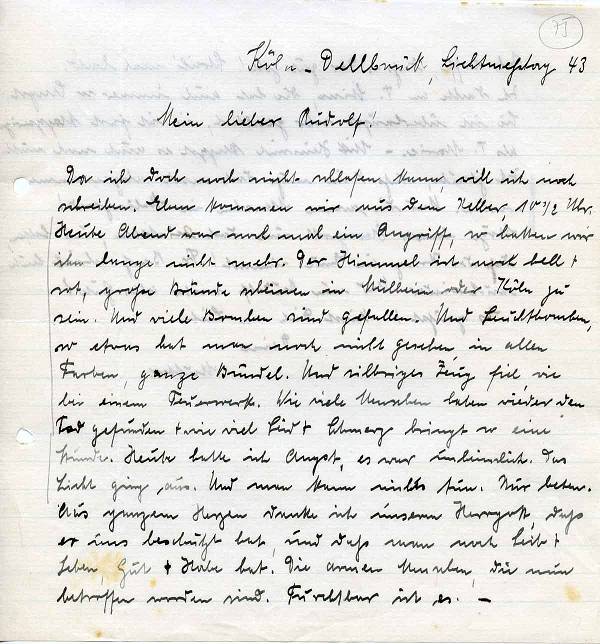 75
Köln-Dellbrück, Lichtmeßtag 43
Mein lieber Rudolf!
Da ich doch noch nicht schlafen kann, will ich noch
schreiben. Eben kommen wir aus dem Keller, 10 1/2 Uhr.
Heute Abend war noch mal ein Angriff, so hatten wir
ihn lange nicht mehr. Der Himmel ist noch hell +
rot, große Brände scheinen in Mülheim oder Köln zu
sein. Und viele Bomben sind gefallen. Und Leuchtbomben,
so etwas hat man noch nicht gesehen, in allen
Farben, ganze Bündel. Und silbriges Zeug fiel, wie
bei einem Feuerwerk. Wie viele Menschen haben wieder den
Tod gefunden + wie viel Leid + Schmerz bringt so eine
Stunde. Heute hatte ich Angst, es war unheimlich. Das
Licht ging aus. Und man kann nichts tun. Nur beten.
Aus ganzem Herzen danke ich unserm Herrgott, daß
er uns beschützt hat, und daß man noch Leib +
Leben, Gut + Habe hat. Die armen Menschen, die nun
betroffen worden sind. Furchtbar ist es. –